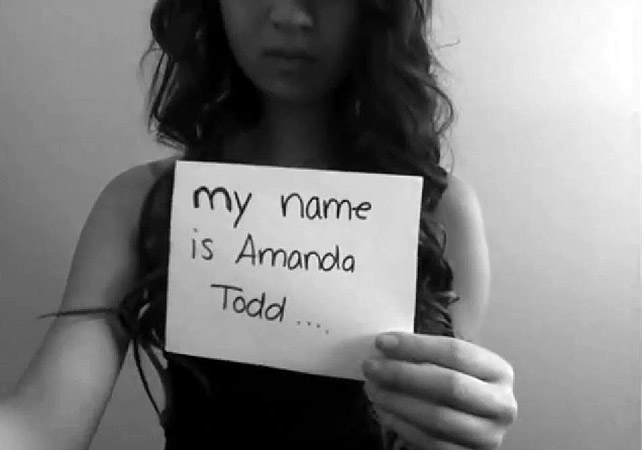 my name
is Amanda
Todd....